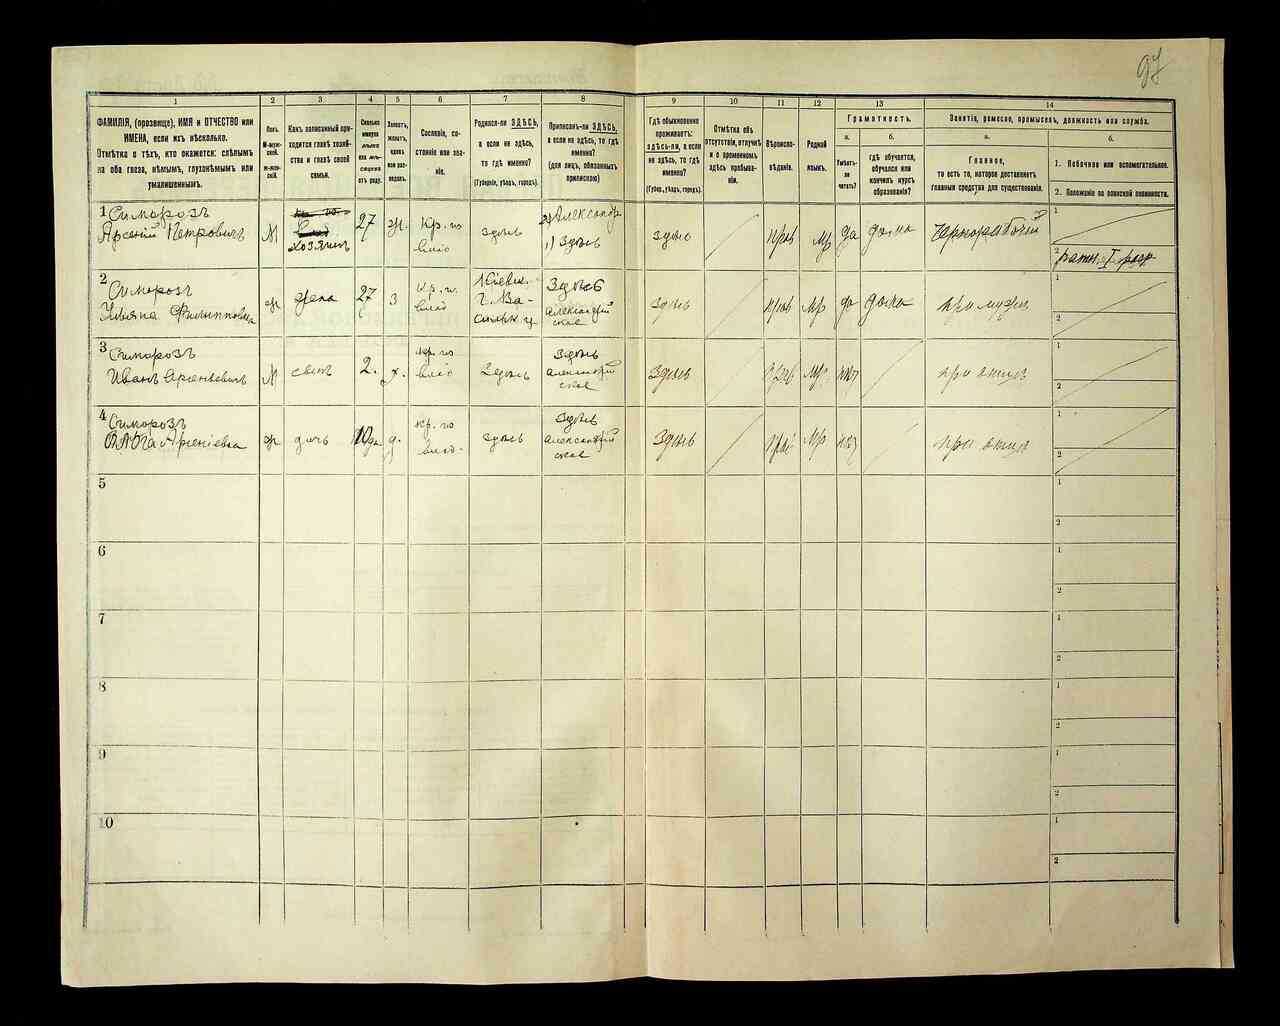 97
1
2
3
4
5
6
7
8
9
10
11
12
13
14
ФАМИЛІЯ, (прозвище), ИМЯ и ОТЧЕСТВО или
ИМЕНА, если ихъ нѣсколько.
Отмѣтка о тѣхъ, кто окажется: слѣпымъ
на оба глаза, нѣмымъ, глухонѣмымъ или
умалишеннымъ.
Полъ.
М-муж-
ской.
Ж-жен-
скій.
Какъ записанный при-
ходится главѣ хозяй-
ства и главѣ своей
семьи.
Сколько
минуло
лѣтъ
или мѣ-
сяцевъ
отъ роду.
Холостъ,
женатъ,
вдовъ
или раз-
веденъ.
Сословіе, со-
стояніе или зва-
ніе.
Родился-ли ЗДѢСЬ,
а если не здѣсь,
то гдѣ именно?
(Губернія, уѣздъ, городъ).
Приписанъ-ли ЗДѢСЬ,
а если не здѣсь, то гдѣ
именно?
(для лицъ, обязанныхъ
припискою)
Гдѣ обыкновенно
проживаетъ:
здѣсь-ли, а если
не здѣсь, то гдѣ
именно?
(Губер.,уѣздъ, городъ).
Отмѣтка объ
отсутствіи, отлучкѣ
и о временномъ
здѣсь пребыва-
ніи.
Вѣроиспо-
вѣданіе.
Родной
языкъ.
Грамотность.
а.
б.
Умѣетъ-
ли
читать?
гдѣ обучается,
обучался или
кончилъ курсъ
образованія?
Занятіе, ремесло, промыселъ, должность или служба.
а.
б.
Главное,
то есть то, которое доставляетъ
главныя средства для существованія.
1. Побочное или вспомогательное.
2. Положеніе по воинской повинности.
1 Симорозъ
Арсеній Петровичъ
М
хозяинъ
27
ж.
Кр. по
здѣсь
2) Александр
1) Здѣсь
здѣсь
Прав
Мр
да
дома
Чернорабочій
1
2 ратн. I разр
2 Симорозъ
Ульяна Филипповна
ж
жена
27
з
Кіевск.
г. Ва-
сильк. у.
Здѣсь
Александрій
ское
здѣсь
Прав
Мр
да
дома
при мужѣ
1
2
3 Симорозъ
Иванъ Арсеньевичъ
М
сынъ
2.
х.
кр. по
Здѣсь
Здѣсь
Александрій
ское
Здѣсь
Мр.
при отцѣ
1
2
4 Симорозъ
Арсеніевна
ж
дочь
д.
кр. по
влад.
здѣсь
Здѣсь
Александрій
ское
Здѣсь
Прав
Мр
при отцѣ
1
2
5
1
2
6
1
2
7
1
2
8
1
2
9
1
2
10
1
2